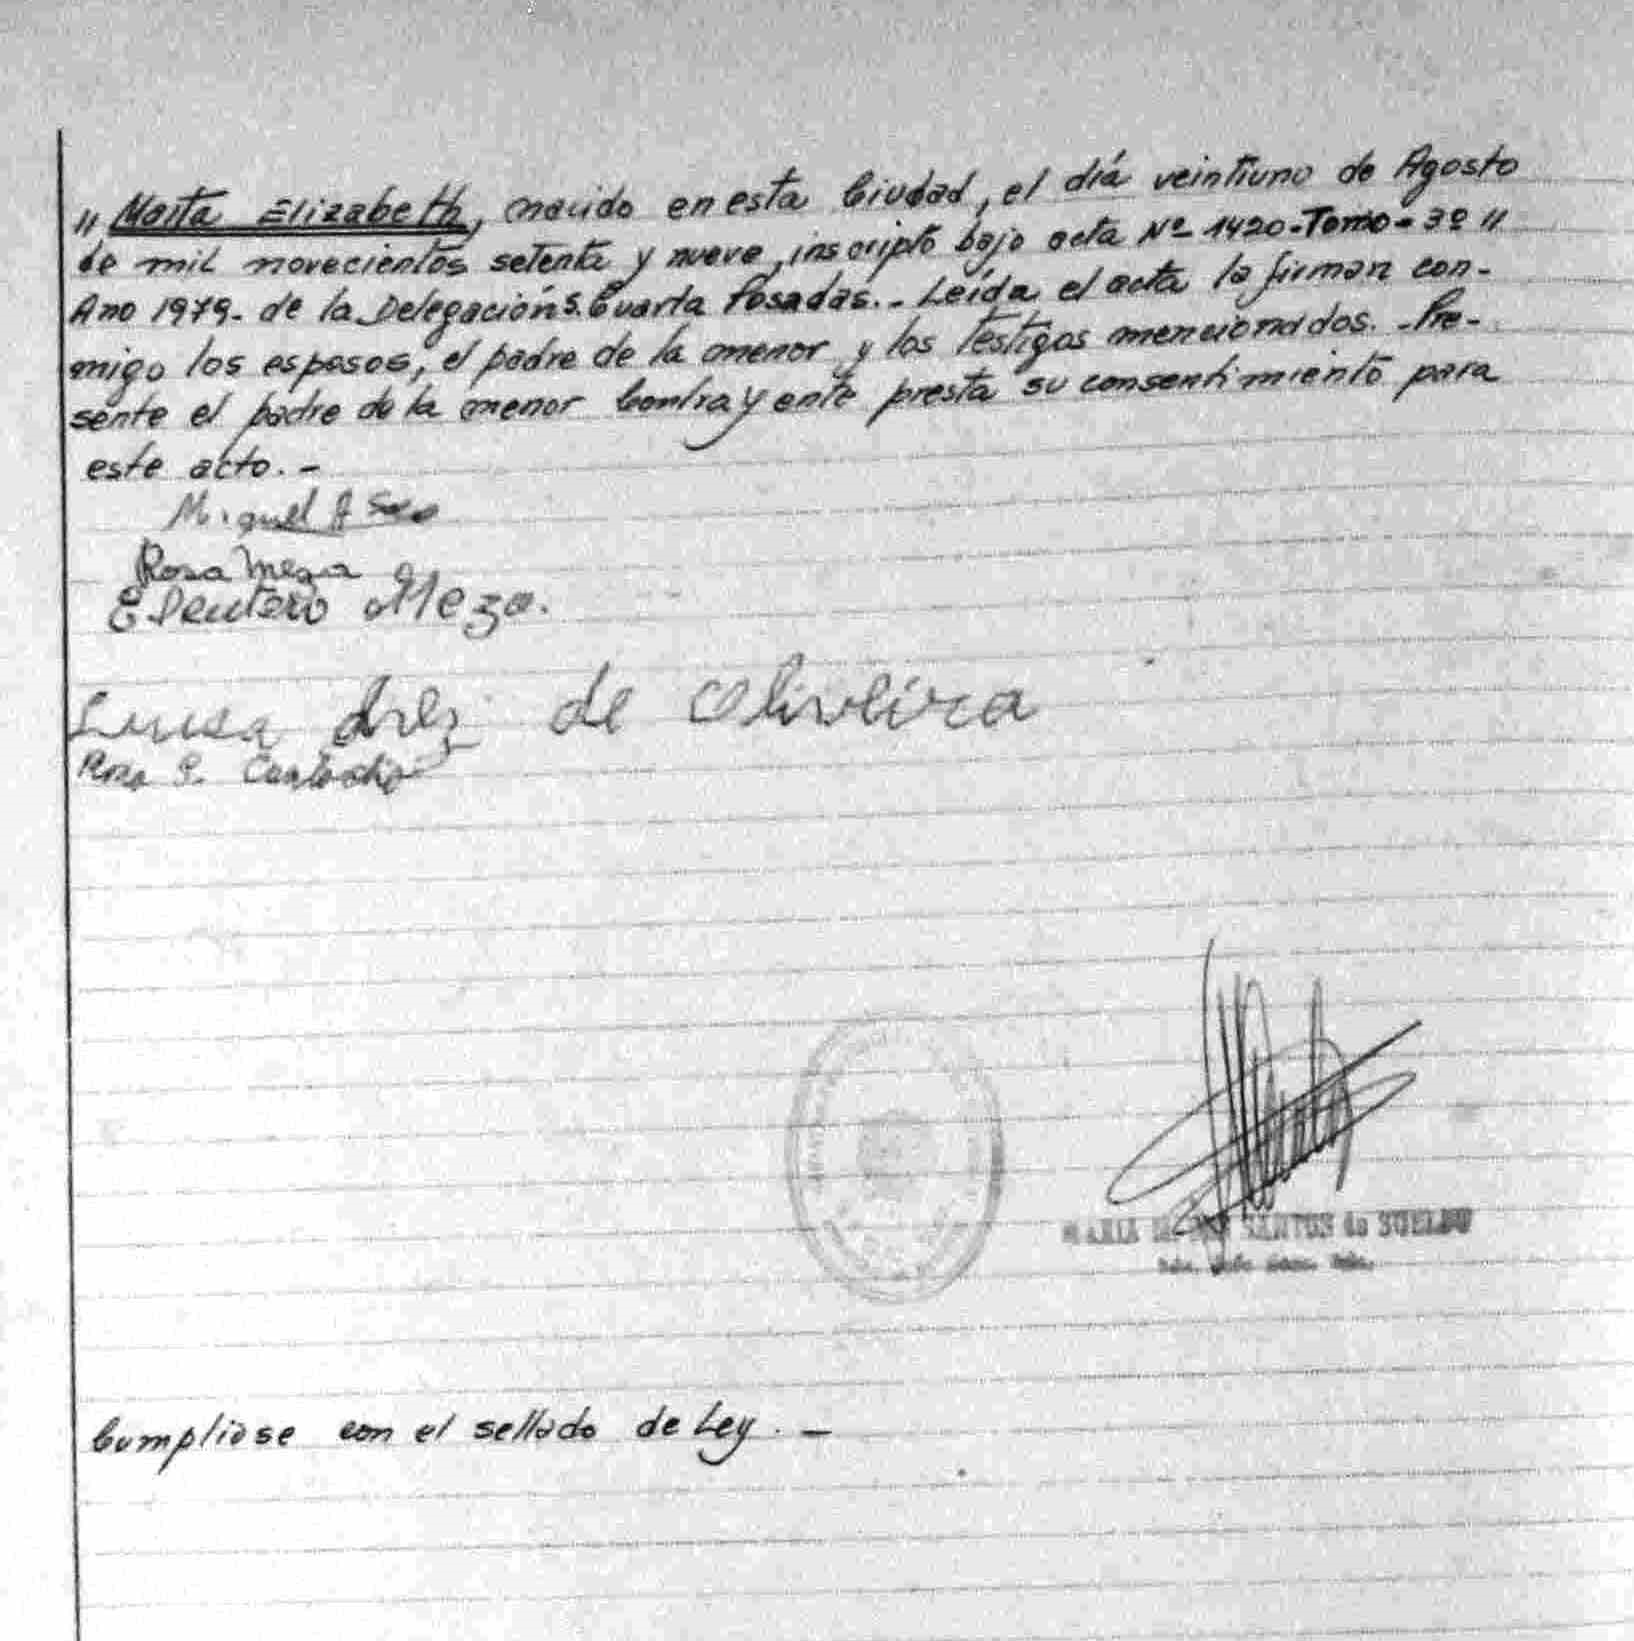 " Marta Elizabeth, nacido en esta Ciudad, el día veintiuno de Agosto
de mil novecientos setenta y nueve, inscripto bajo acta Nº 1420-Tomo-3º "
Ano 1979. de la Delegación S. Cuarta Posadas.- Leída el acta la firman con-
migo los esposos, el padre de la menor y los testigos mencionados. -Pre-
sente el padre de la menor Contrayente presta su consentimiento para
este acto.-
Miguel A
Rosa Meza
Eleuterio Meza.
Luisa de Oliveira
Rosa
MARIA SANTOS de
Cumpliose con el sellado de Ley. -